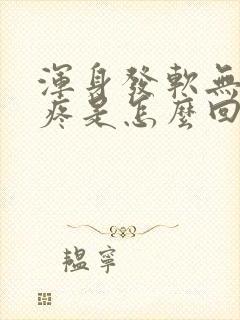 渾身發軟無
疼是怎麼回
韞寧